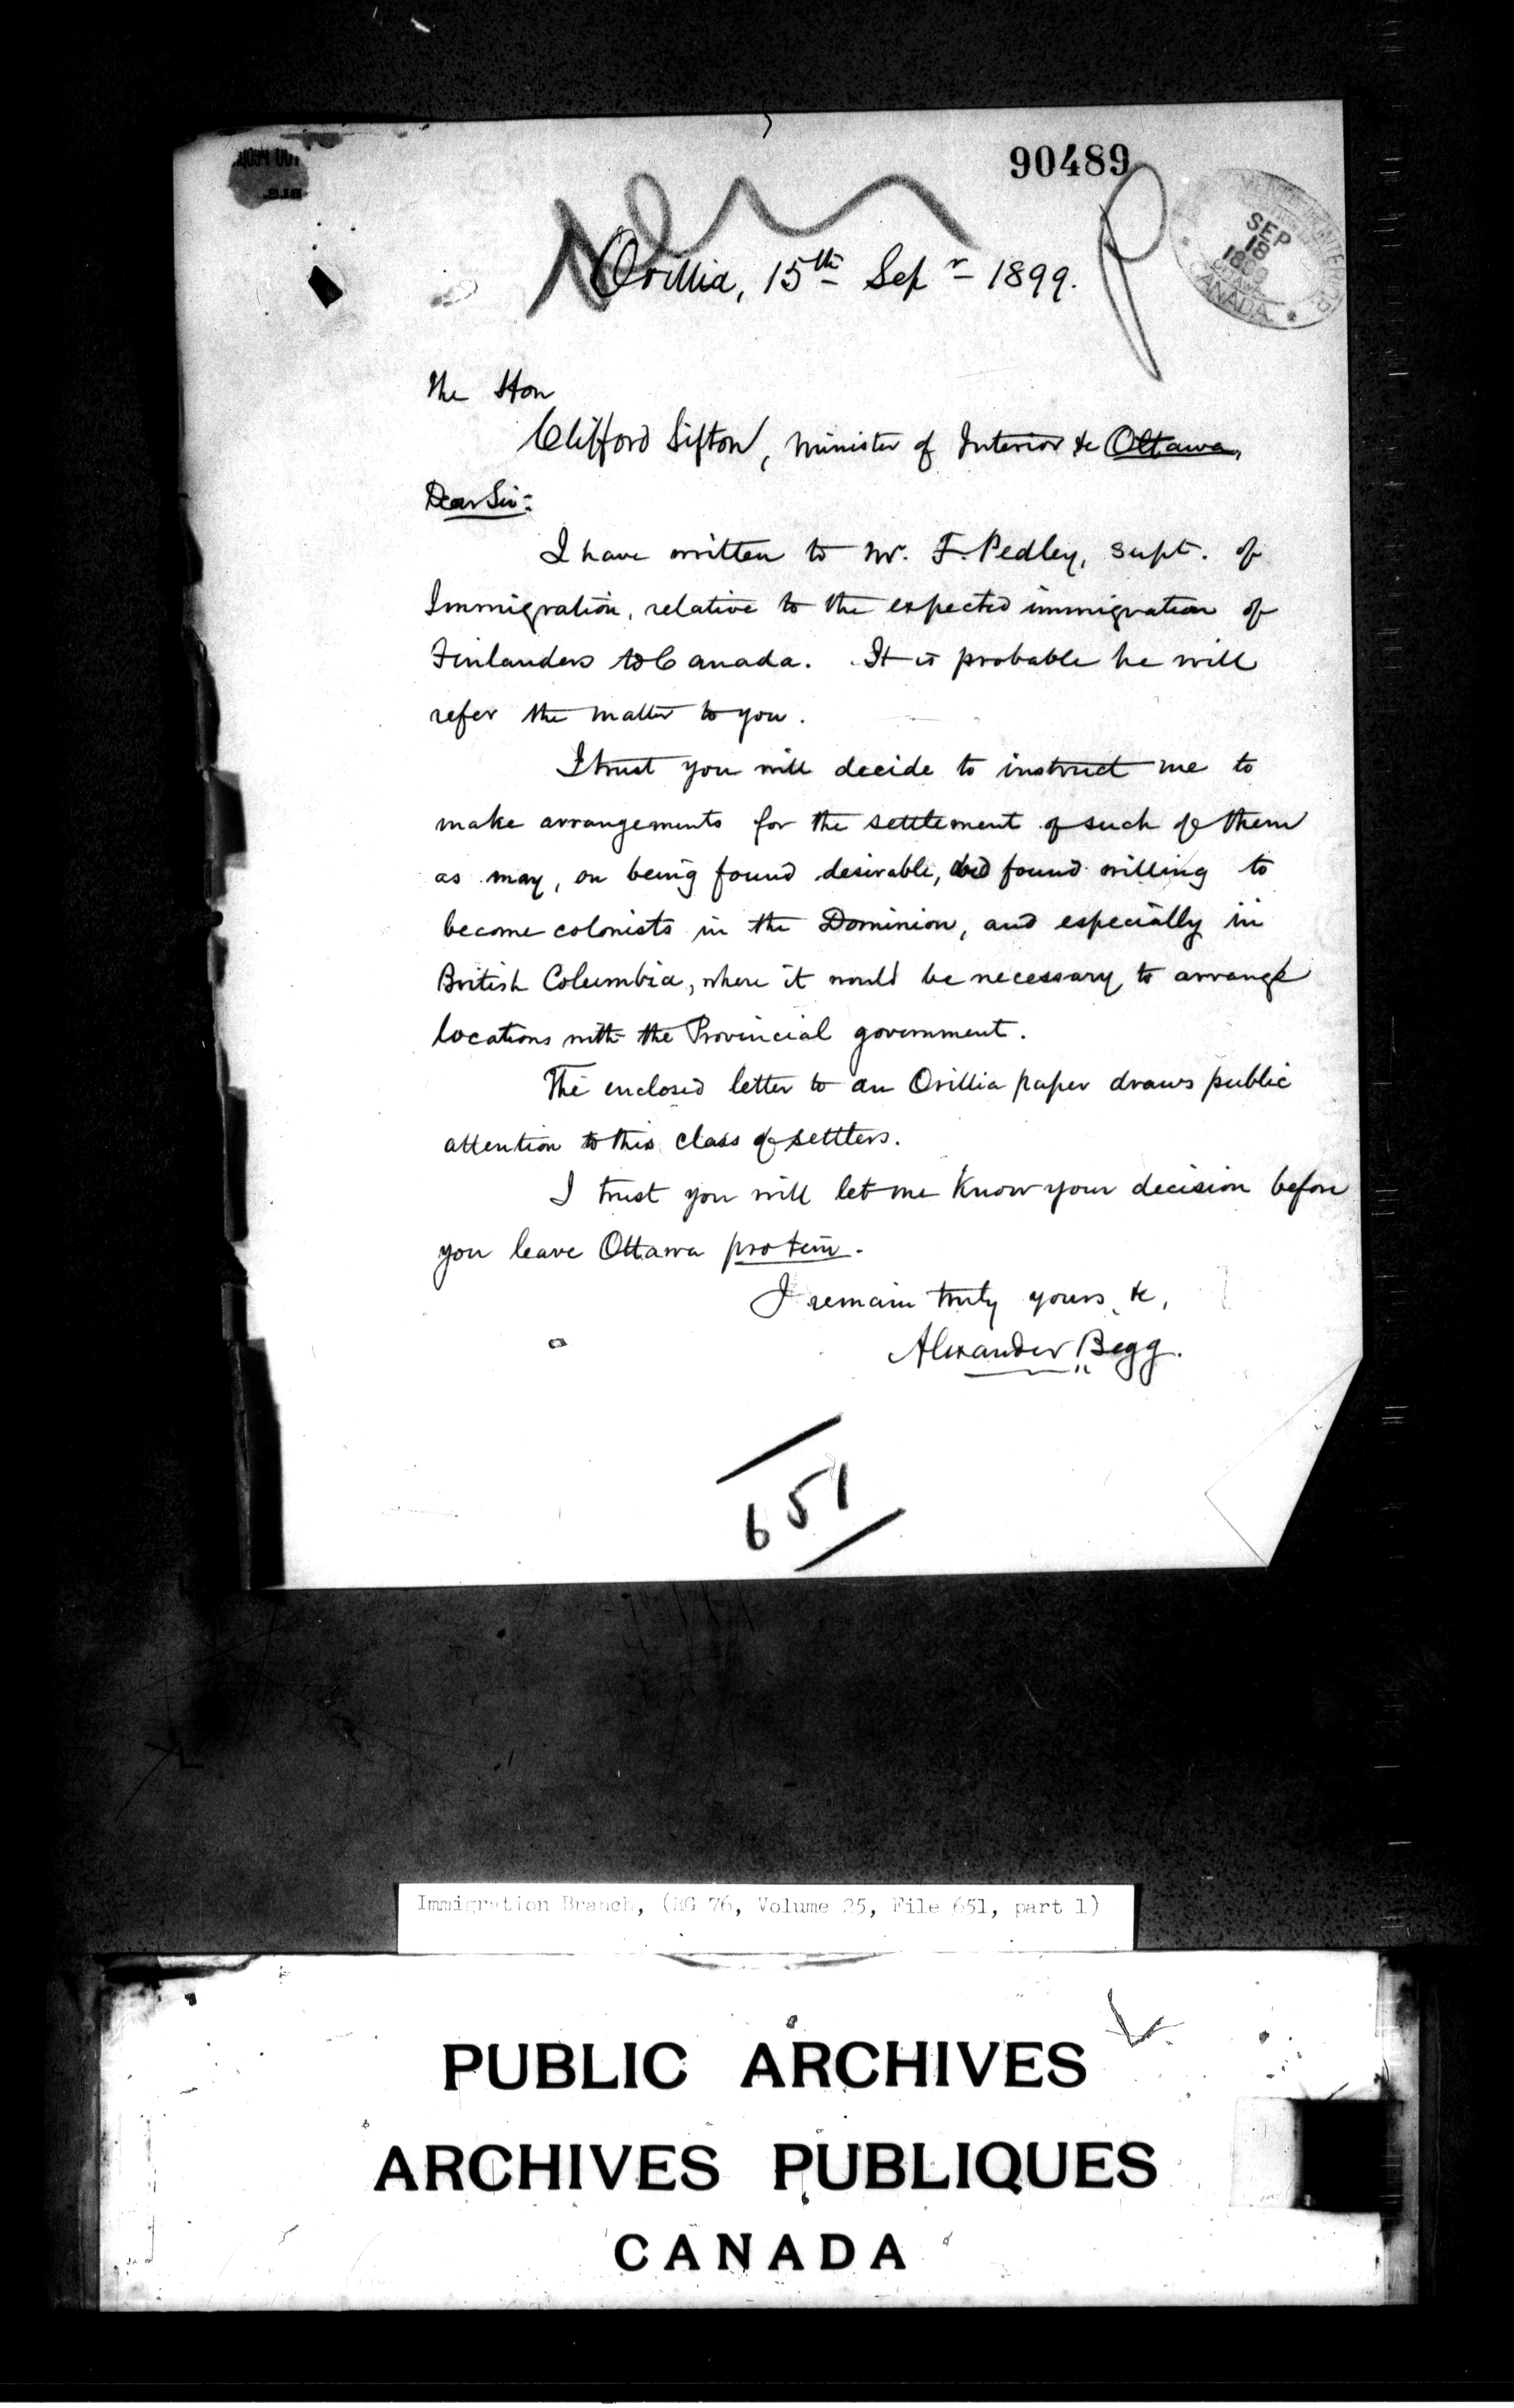 90489
SEP
18
1899
CANADA
Orillia, 15th Sepr 1899.
The Hon
Clifford Sifton, Minister of Interior &c Ottawa,
Dear Sir:
I have written to Mr. F. Pedley, Supt. of
Immigration, relative to the expected immigration of
Finlanders to Canada. It is probable he will
refer the matter to you.
I trust you will decide to instruct me to
make arrangements for the settlement of such of them
as may, on being found desirable, and found willing to
become colonists in the Dominion, and especially in
British Columbia, where it would be necessary to arrange
locations with the Provincial government.
The enclosed letter to an Orillia paper draws public
attention to this class of settlers.
I trust you will let me know your decision before
you leave Ottawa pro tem.
I remain truly yours, &c,
Alexander Begg.
651
Immigration Branch, (RG 76, Volume 25, File 651, part 1)
PUBLIC ARCHIVES
ARCHIVES PUBLIQUES
CANADA